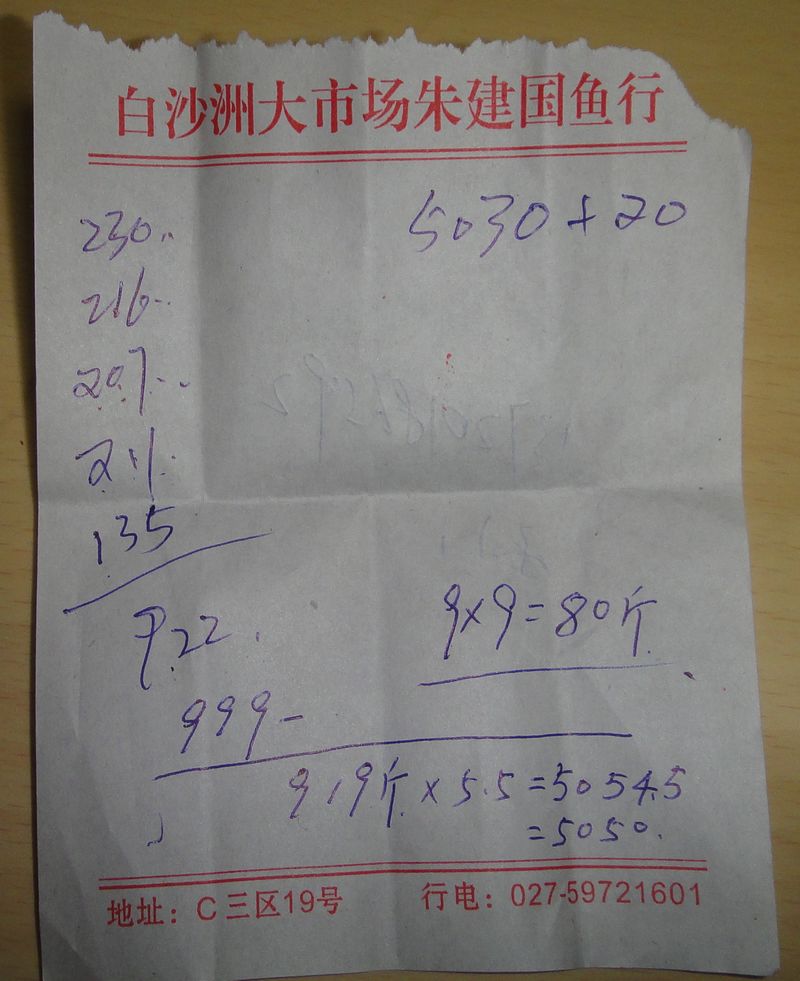 白沙洲大市场朱建国鱼行
5030+20
230..
216..
207..
211.
135
9×9=80斤
999-
919斤×5.5=5054.5
=5050.
地址：C三区19号 行电：027-59721601